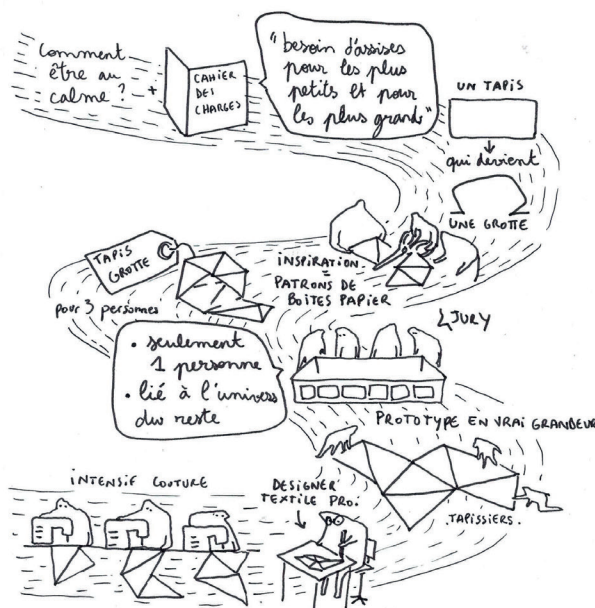 Comment
être au
calme ?
+
CAHIER
DES
CHARGES
"besoin d'assises
pour les plus
petits et pour
les plus grands"
UN TAPIS
qui devient
UNE GROTTE
TAPIS
GROTTE
pour 3 personnes
INSPIRATION
=
PATRONS DE
BOITES PAPIER
JURY
• seulement
1 personne
• lié à l'univers
du reste
PROTOTYPE EN VRAI GRANDEUR
TAPISSIERS.
INTENSIF COUTURE
DESIGNER
TEXTILE PRO.